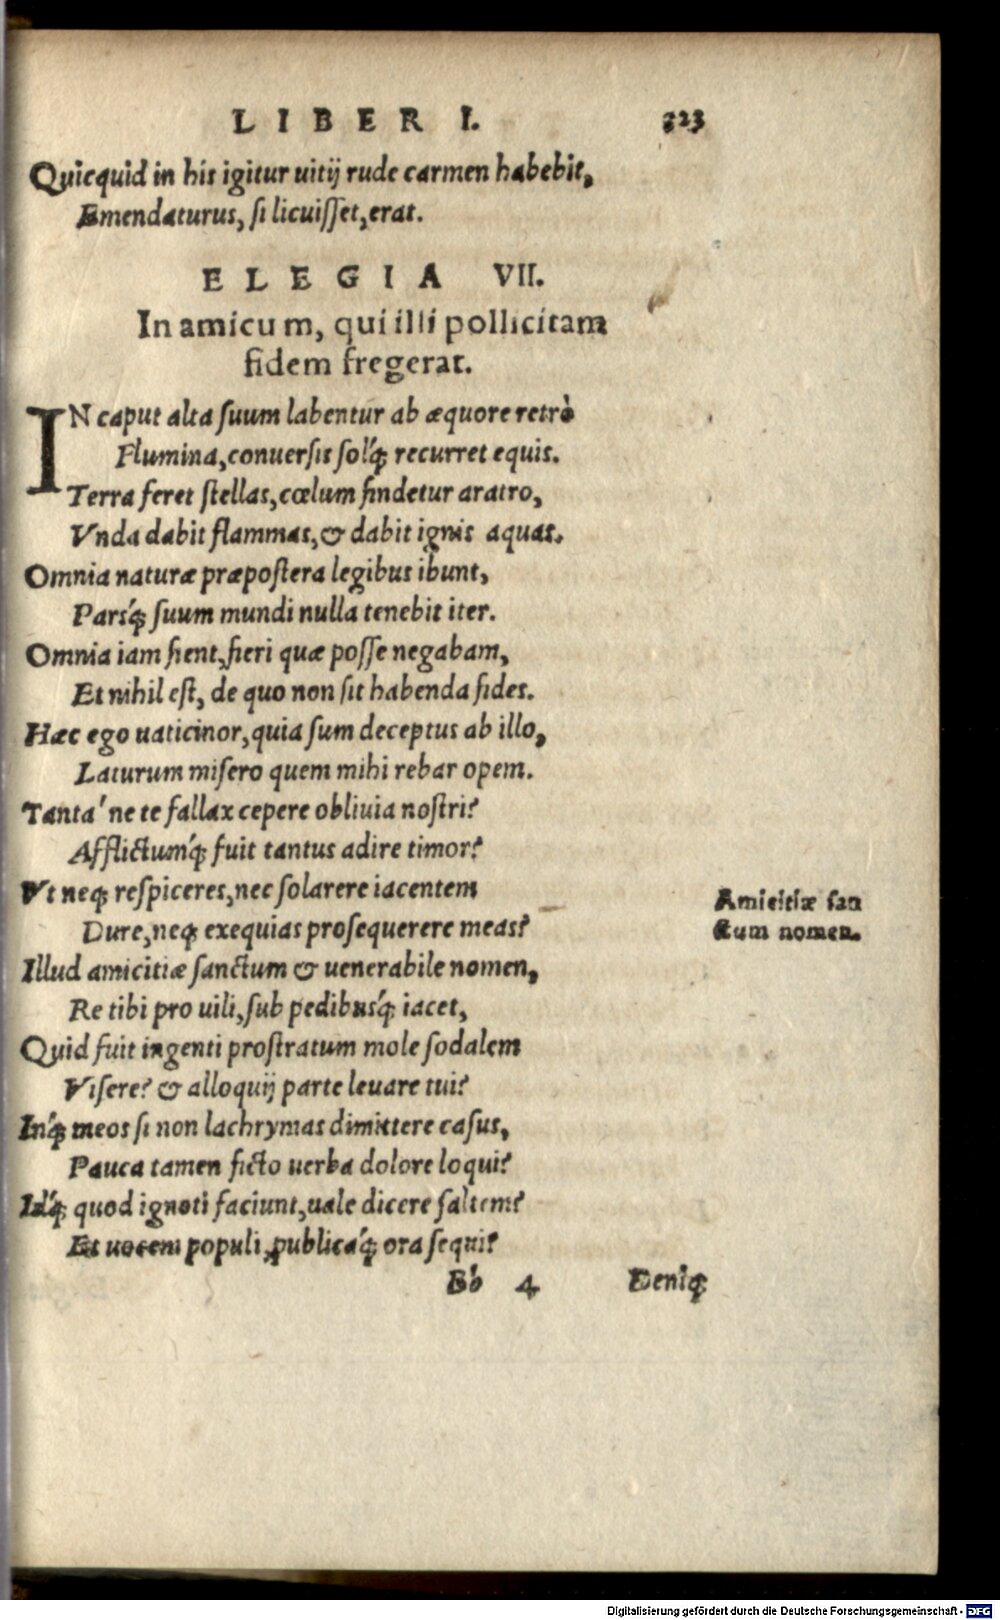 LIBER I. 323
Quicquid in his igitur uitij rude carmen habebit,
Emendaturus, si licuisset, erat.
ELEGIA VII.
In amicum, qui illi pollicitam
fidem fregerat.
IN caput alta suum labentur ab æquore retrò
Flumina, conuersis solq́; recurret equis.
Terra feret stellas, cœlum findetur aratro,
Vnda dabit flammas, & dabit ignis aquas.
Omnia naturæ præpostera legibus ibunt,
Parsq́; suum mundi nulla tenebit iter.
Omnia iam fient, fieri quæ posse negabam,
Et nihil est, de quo non sit habenda fides.
Hæc ego uaticinor, quia sum deceptus ab illo,
Laturum misero quem mihi rebar opem.
Tanta' ne te fallax cepere obliuia nostri?
Afflictumq́; fuit tantus adire timor?
Vt neq; respiceres, nec solarere iacentem
Dure, neq; exequias prosequerere meas?
Amicitiæ san
ctum nomen.
Illud amicitiæ sanctum & uenerabile nomen,
Re tibi pro uili, sub pedibusq́; iacet,
Quid fuit ingenti prostratum mole sodalem
Visere? & alloquij parte leuare tui?
Inq́; meos si non lachrymas dimittere casus,
Pauca tamen ficto uerba dolore loqui?
Idq́; quod ignoti faciunt, uale dicere saltem?
Et uocem populi, publicaq́; ora sequi?
Bb 4 Deniq;
Digitalisierung gefördert durch die Deutsche Forschungsgemeinschaft - DFG